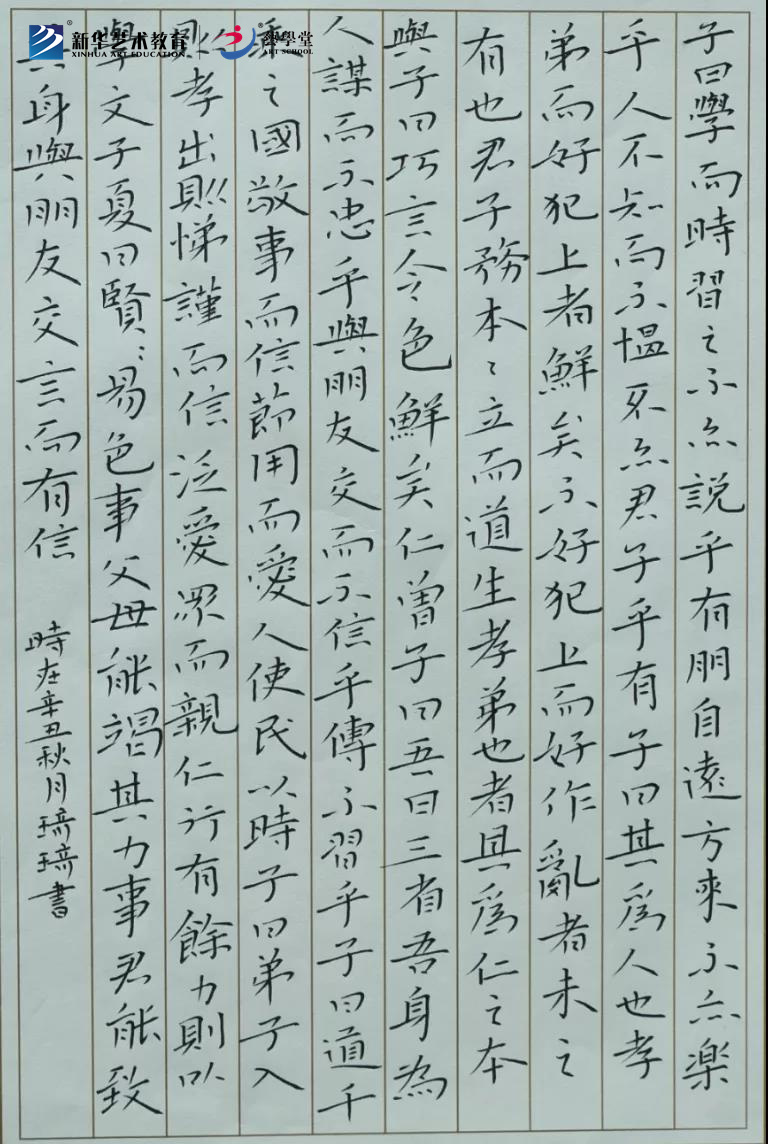 新华艺术教育
XINHUA ART EDUCATION
藝學堂
ART SCHOOL
子曰學而時習之不亦說乎有朋自遠方來不亦楽
乎人不知而不愠不亦君子乎有子曰其為人也孝
弟而好犯上者鮮矣不好犯上而好作亂者未之
有也君子務本〻立而道生孝弟也者其為仁之本
與子曰巧言令色鮮矣仁曾子曰吾日三省吾身為
人謀而不忠乎與朋友交而不信乎傳不習乎子曰道千
乘之國敬事而信節用而愛人使民以時子曰弟子入
則孝出則悌謹而信泛愛眾而親仁行有餘力則以
學文子夏曰賢〻易色事父母能竭其力事君能致
其身與朋友交言而有信
時在辛丑秋月琦琦書